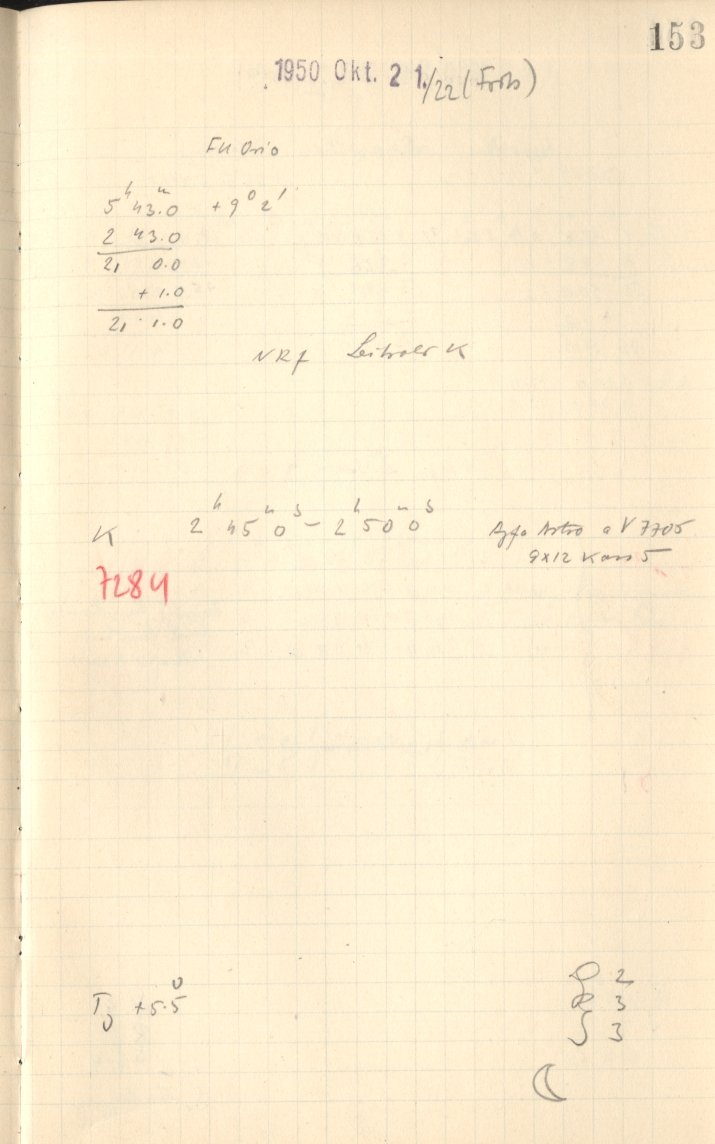 153
1950 Okt. 2 1./22 (Frots)
FU Orio
5h 43m.0 +9° 2'
2 43.0
21 0.0
+ 1.0
21 1.0
NRf K
K 2h 45m 0s – 2h 50m 0s Agfa Astro a V 7705
9x12 Kass 5
7284
T +5.5°
2
R 3
S 3
☾